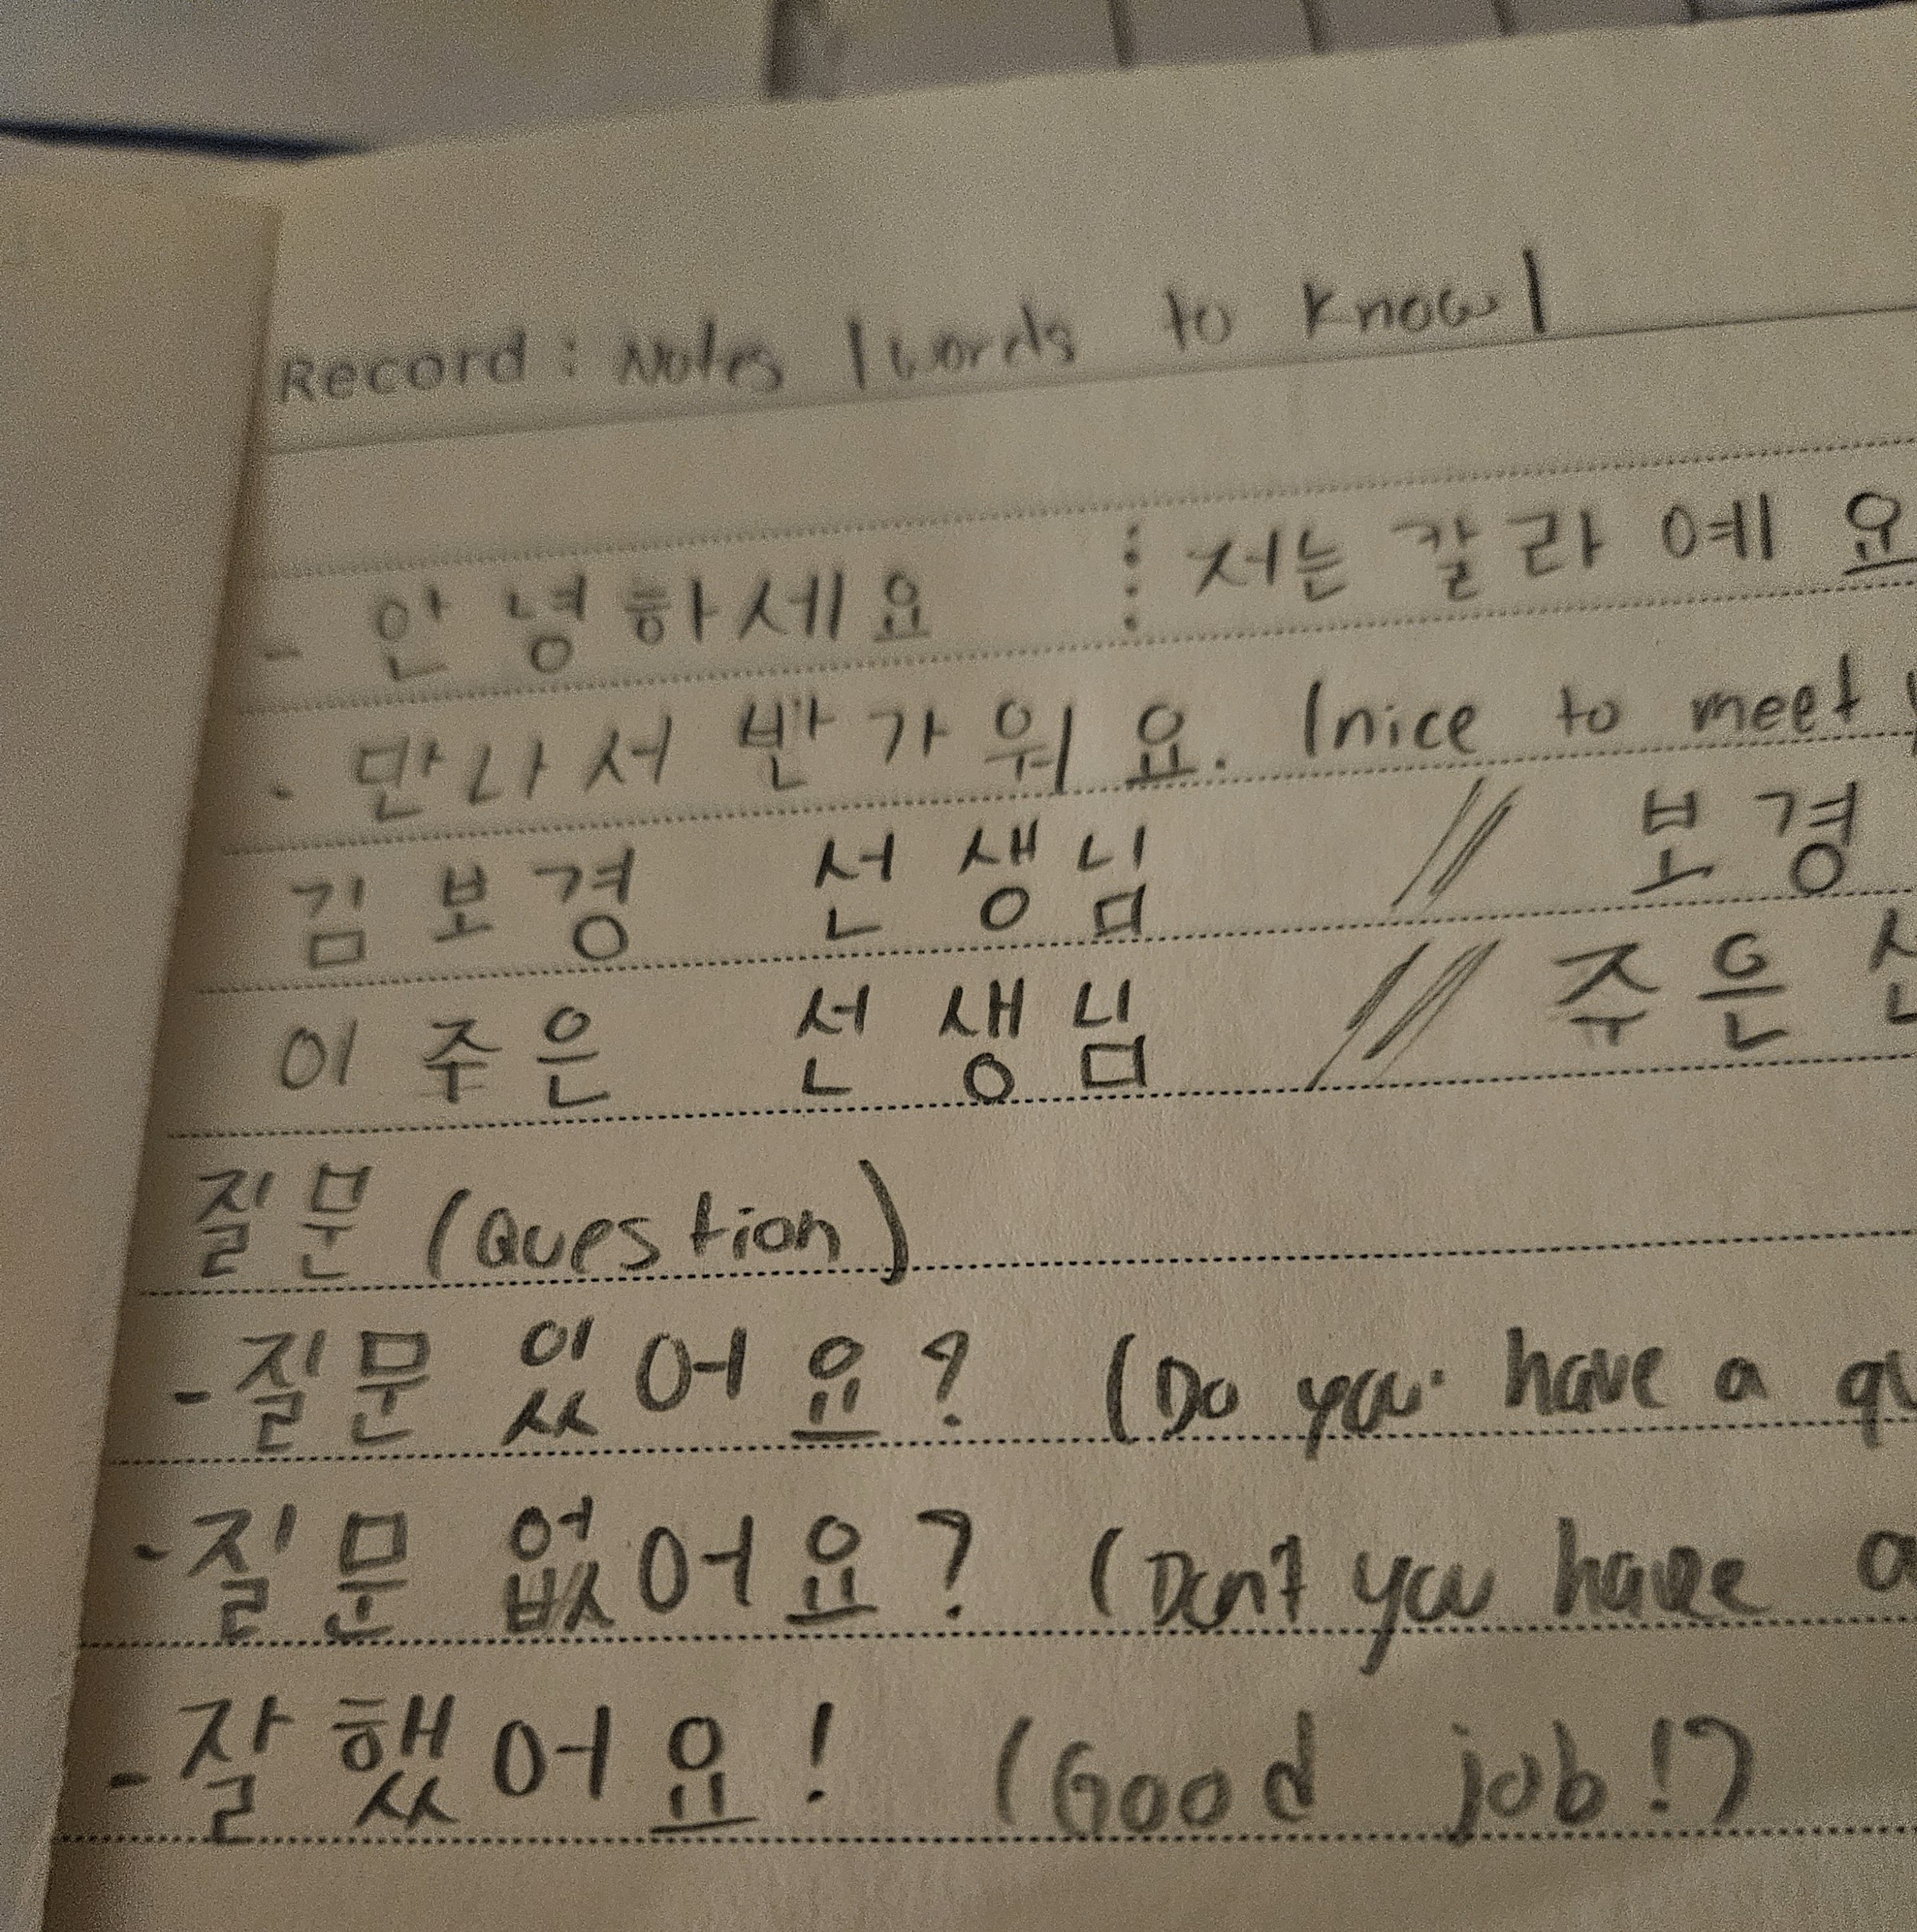 Record : Notes (words to know)
- 안녕하세요 ⋮ 저는 칼라예요
- 만나서 반가워요. (nice to meet
김보경 선생님 // 보경
이주은 선생님 // 쥬은
질문 (Question)
- 질문 있어요? (Do you have a qu
- 질문 없어요? (Don't you have a
- 잘했어요! (Good job!)